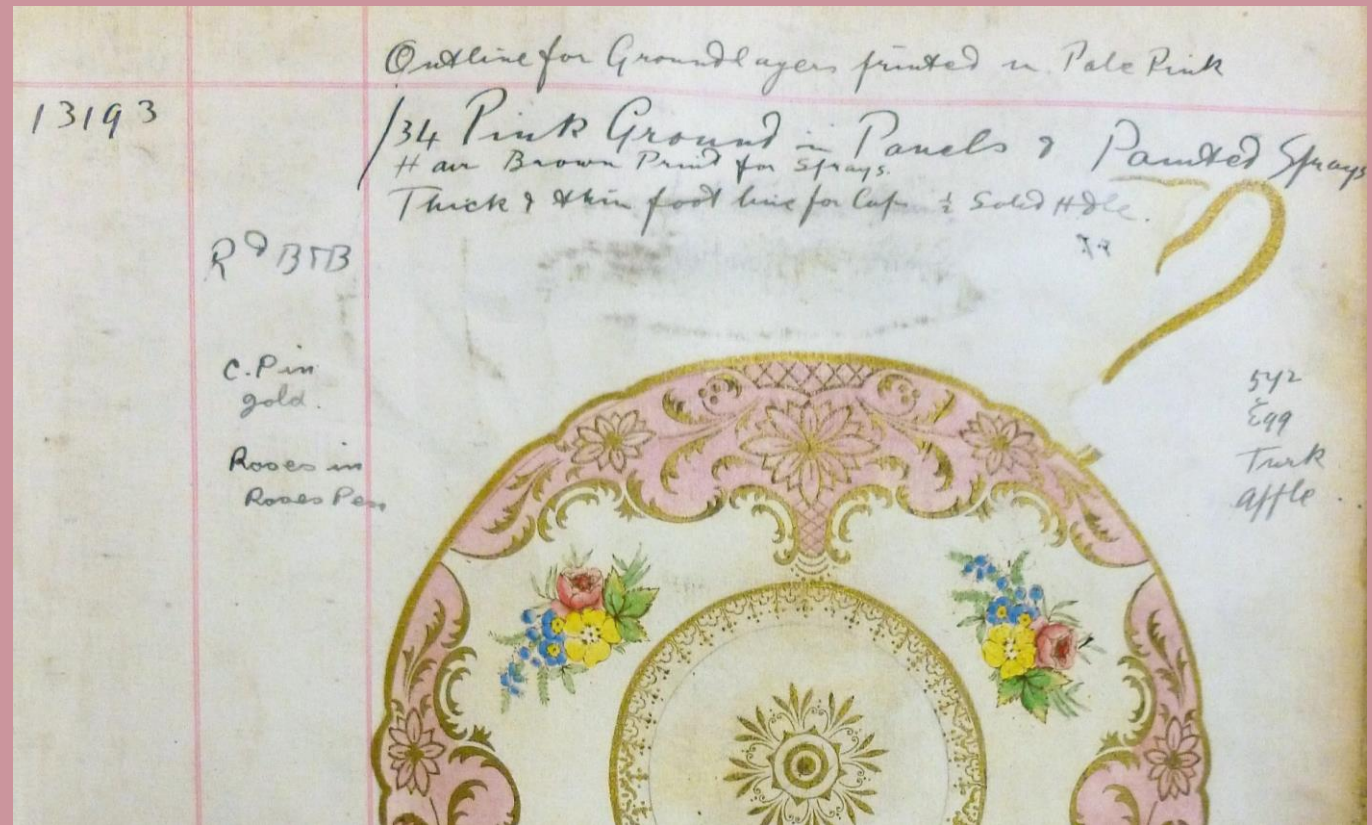 Outline for Groundlayers printed in Pale Pink
13193
/34 Pink Ground in Panels & Painted Sprays
Hair Brown Print for Sprays.
Thick & thin foot line for Cup ½ Solid Hdle.
Rd BTB
C. Pin
gold.
Roses in
Roses Pen
542
Egg
Turk